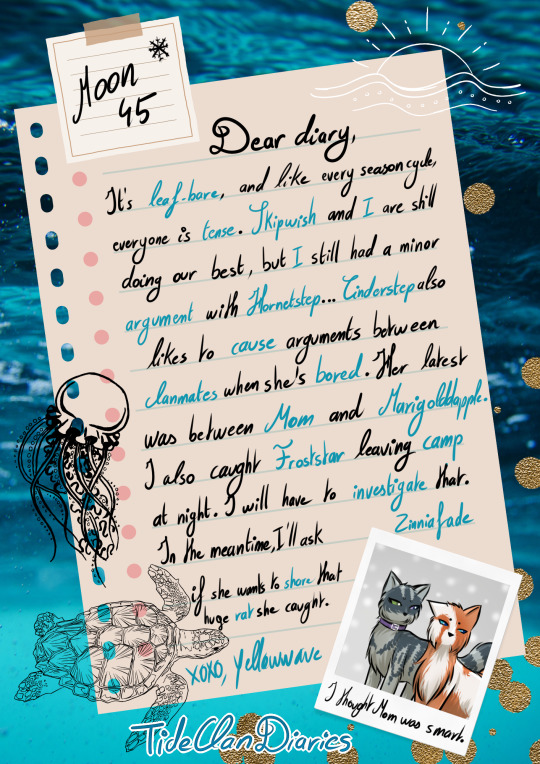 Moon
45
Dear diary,
It's leaf-bare, and like every season cycle,
everyone is tense. Skipwish and I are still
doing our best, but I still had a minor
argument with Hornetstep... Cinderstep also
likes to cause arguments between
clanmates when she's bored. Her latest
was between Mom and Marigolddapple.
I also caught Froststar leaving camp
at night. I will have to investigate that.
In the meantime, I'll ask Zinniafade
if she wants to share that
huge rat she caught.
xoxo, Yellowwave
I thought Mom was smart.
TideClanDiaries